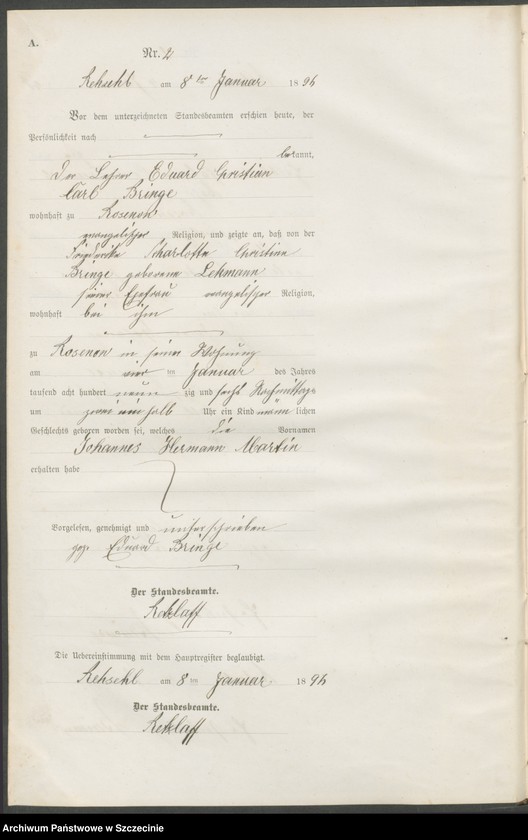 A.
Nr. 2
Rehsehl am 8ten Januar 1896
Vor dem unterzeichneten Standesbeamten erschien heute, der
Persönlichkeit nach
bekannt,
Der Lehrer Eduard Christian
Carl Bringe
wohnhaft zu Rosenow
evangelischer Religion, und zeigte an, daß von der
Friederike Scharlotte Christine
Bringe geborene Lehmann
seiner Ehefrau evangelischer Religion,
wohnhaft bei ihm
zu Rosenow in seiner Wohnung
am vier ten Januar des Jahres
tausend acht hundert neun zig und sechs Nachmittags
um zwei ein halb Uhr ein Kind männ lichen
Geschlechts geboren worden sei, welches die Vornamen
Johannes Hermann Martin
erhalten habe
Vorgelesen, genehmigt und unterschrieben
gez. Eduard Bringe
Der Standesbeamte.
Retzlaff
Die Uebereinstimmung mit dem Hauptregister beglaubigt.
Rehsehl am 8ten Januar 1896
Der Standesbeamte.
Retzlaff
Archiwum Państwowe w Szczecinie